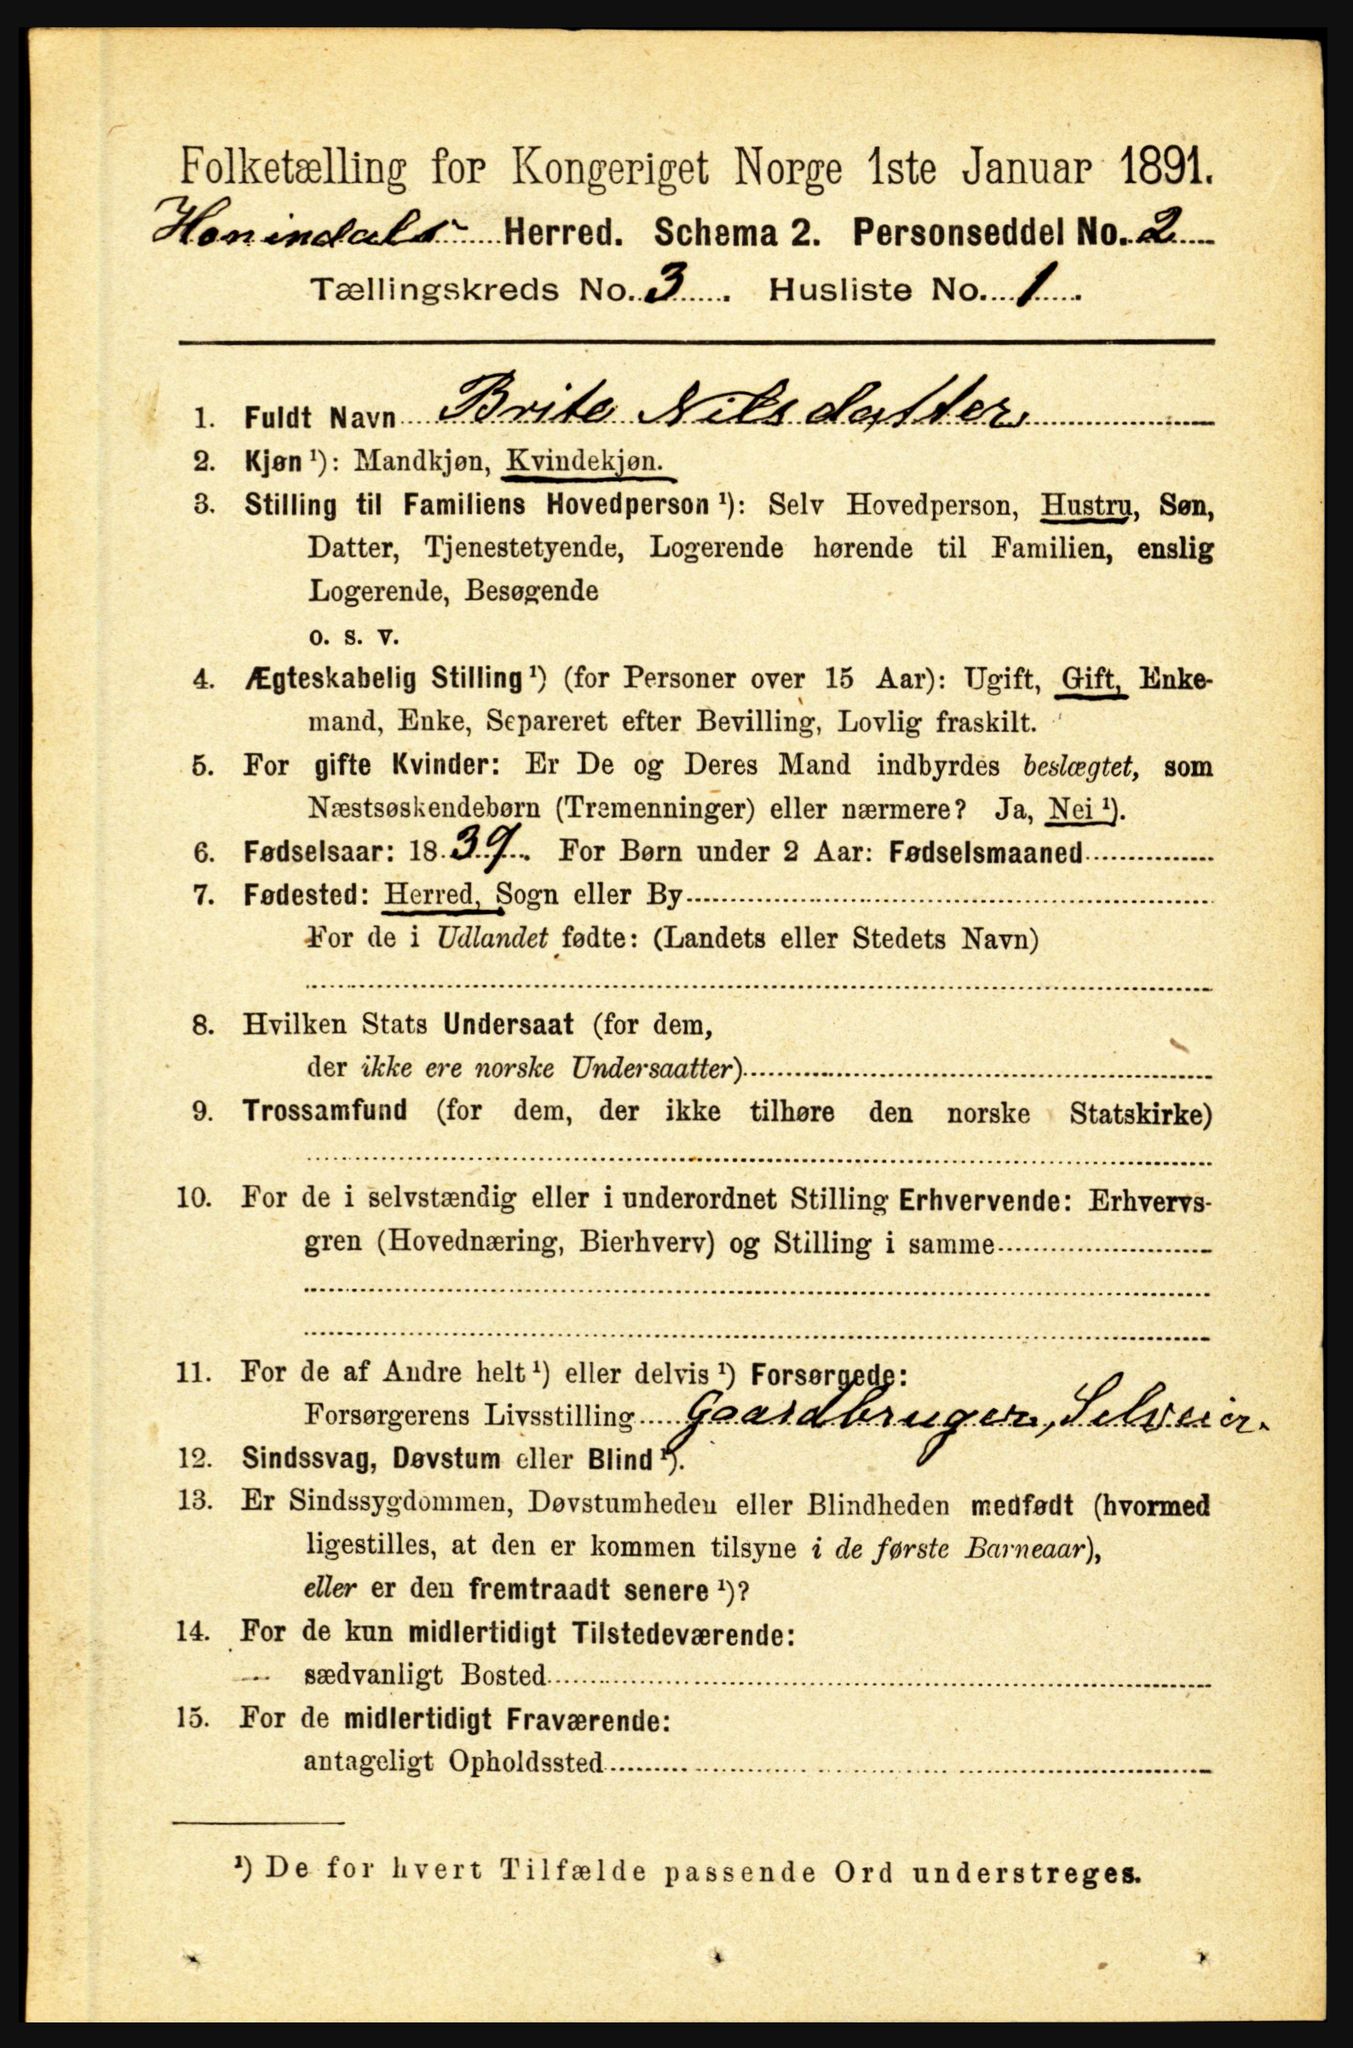 Folketælling for Kongeriget Norge 1ste Januar 1891.
Honindals Herred. Schema 2. Personseddel No. 2
Tællingskreds No. 3. Husliste No. 1.
1. Fuldt Navn Brite Nilsdatter
2. Kjøn ¹): Mandkjøn, Kvindekjøn.
3. Stilling til Familiens Hovedperson ¹): Selv Hovedperson, Hustru, Søn,
Datter, Tjenestetyende, Logerende hørende til Familien, enslig
Logerende, Besøgende
o. s. v.
4. Ægteskabelig Stilling ¹) (for Personer over 15 Aar): Ugift, Gift, Enke-
mand, Enke, Separeret efter Bevilling, Lovlig fraskilt.
5. For gifte Kvinder: Er De og Deres Mand indbyrdes beslægtet, som
Næstsøskendebørn (Tremenninger) eller nærmere? Ja, Nei ¹).
6. Fødselsaar: 1839. For Børn under 2 Aar: Fødselsmaaned
7. Fødested: Herred, Sogn eller By
For de i Udlandet fødte: (Landets eller Stedets Navn)
8. Hvilken Stats Undersaat (for dem,
der ikke ere norske Undersaatter)
9. Trossamfund (for dem, der ikke tilhøre den norske Statskirke)
10. For de i selvstændig eller i underordnet Stilling Erhvervende: Erhvervs-
gren (Hovednæring, Bierhverv) og Stilling i samme
11. For de af Andre helt ¹) eller delvis ¹) Forsørgede:
Forsørgerens Livsstilling Gaardbruger, Selveier.
12. Sindssvag, Døvstum eller Blind ¹).
13. Er Sindssygdommen, Døvstumheden eller Blindheden medfødt (hvormed
ligestilles, at den er kommen tilsyne i de første Barneaar),
eller er den fremtraadt senere ¹)?
14. For de kun midlertidigt Tilstedeværende:
sædvanligt Bosted
15. For de midlertidigt Fraværende:
antageligt Opholdssted
¹) De for hvert Tilfælde passende Ord understreges.